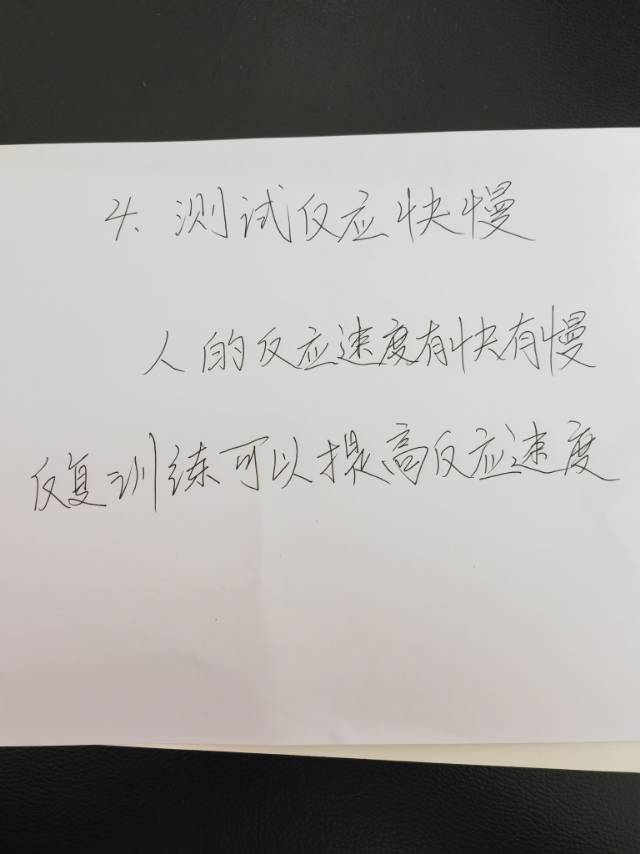 4、测试反应快慢
人的反应速度有快有慢
反复训练可以提高反应速度